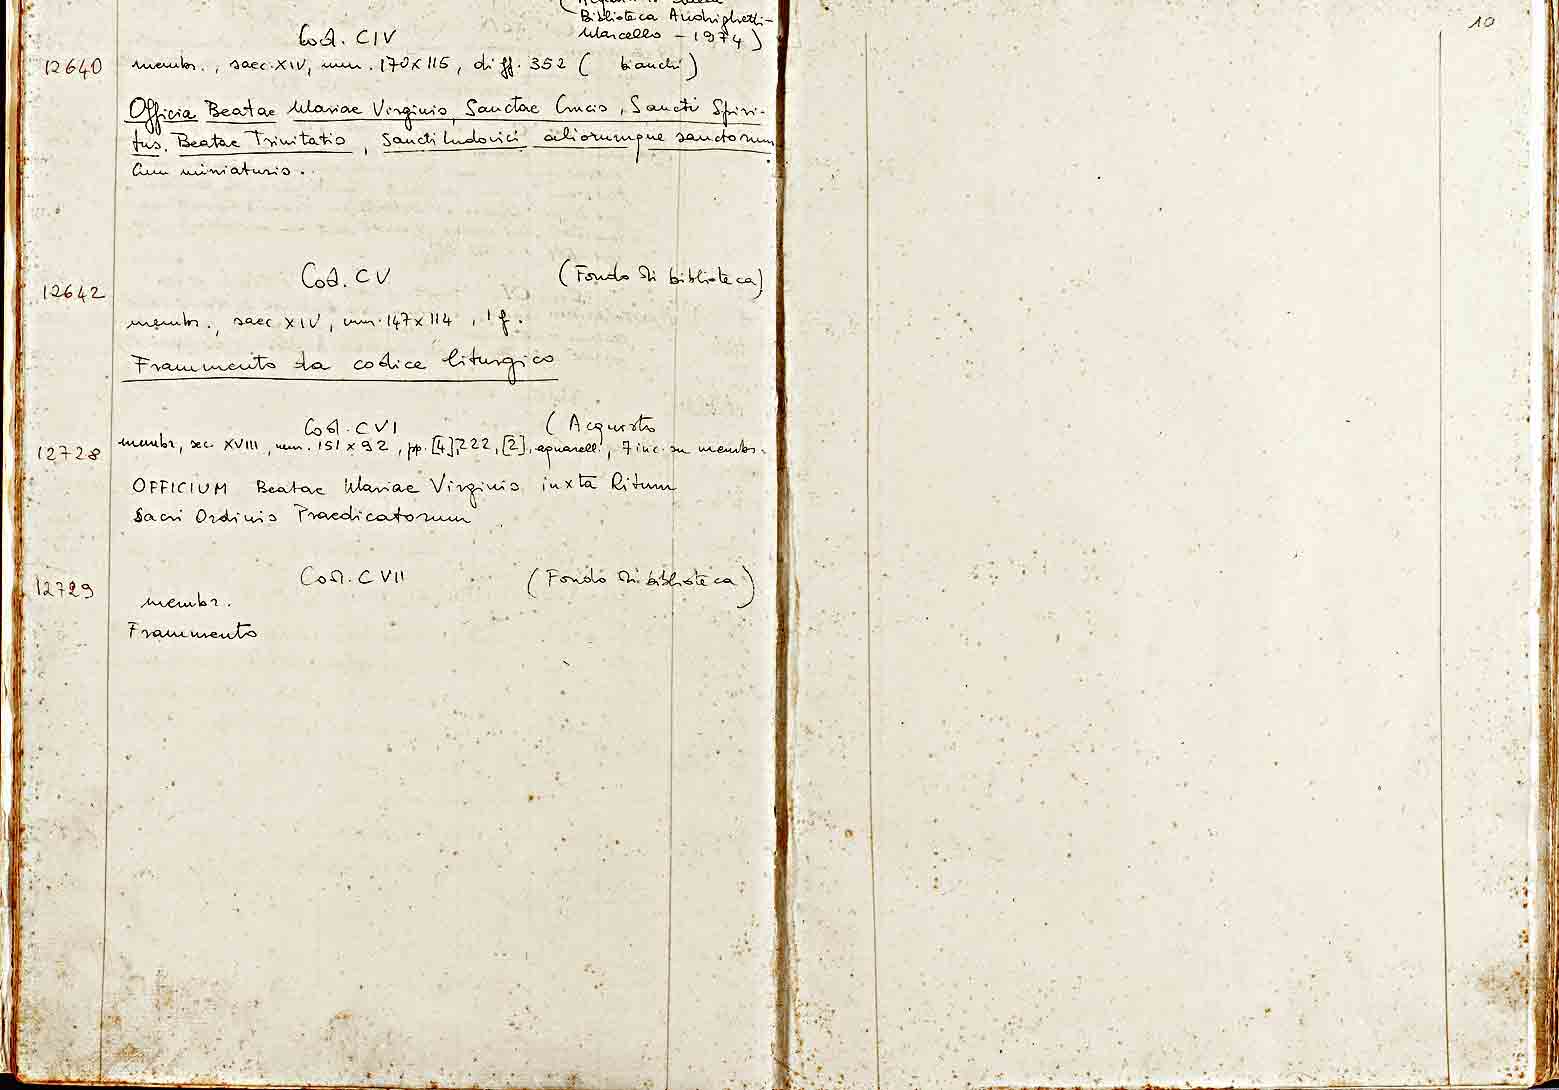 Biblioteca Andrighetti-
Cod. CIV Marcello - 1974)
12640 membr., saec. XIV, mm. 170x115, di ff. 352 ( bianchi)
Officia Beatae Mariae Virginis, Sanctae Crucis, Sancti Spiri-
tus, Beatae Trinitatis, Sancti Ludovici aliorumque sanctorum
Cum miniaturis.
Cod. CV (Fondo di biblioteca)
12642
membr., saec XIV, mm. 147x114, 1 f.
Frammento da codice liturgico
Cod. CVI (Acquisto
12728 membr, sec. XVIII, mm. 151x92, pp. [4], 222, [2], aquarell., 7 inc. su membr.
OFFICIUM Beatae Mariae Virginis iuxta Ritum
Sacri Ordinis Praedicatorum
Cod. CVII (Fondo di biblioteca)
12729
membr.
Frammento
10